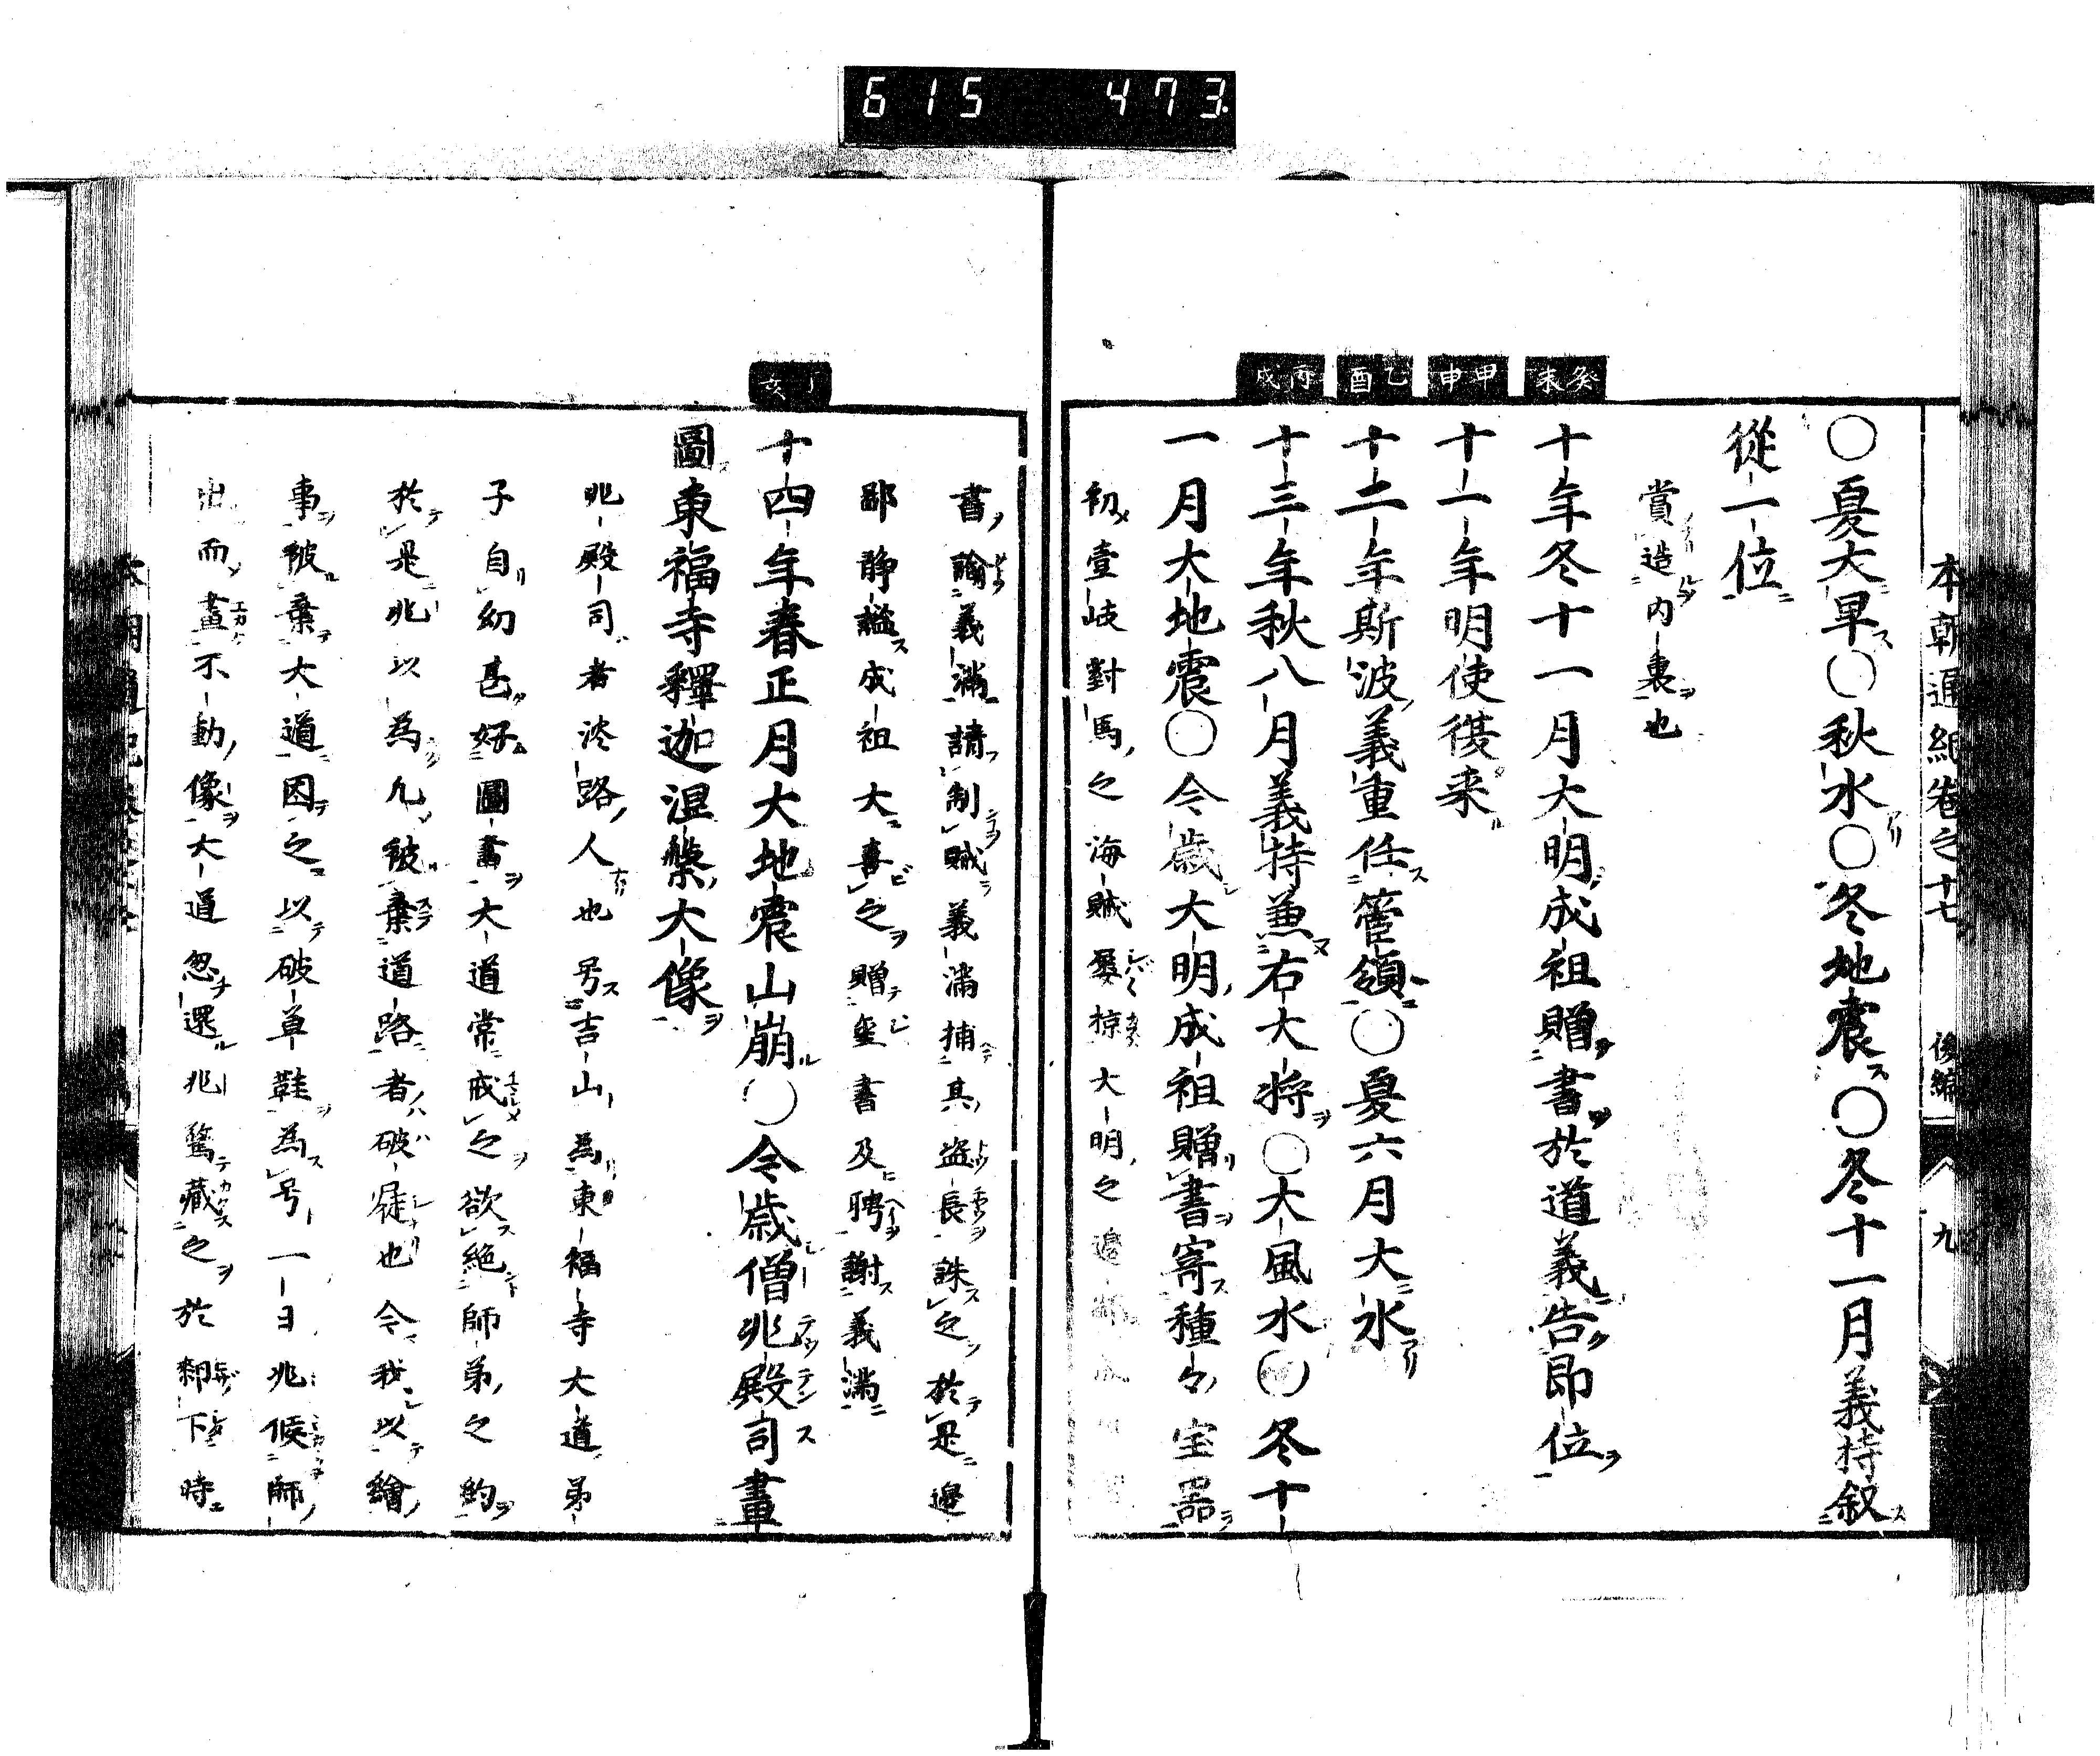 615 473
本朝通紀卷之十七 後編 九
○夏大旱○秋水○冬地震○冬十一月義持叙
從一位
賞造内裏也
癸未
十年冬十一月大明成祖贈書於道義告即位
甲申
十一年明使復来
乙酉
十二年斯波義重任管領○夏六月大水
丙戌
十三年秋八月義持兼右大将○大風水○冬十
一月大地震○今歳大明成祖贈書寄種々宝器
初壹岐對馬之海賊屡掠大明之邉
書諭義満請制賊義満捕其盗長誅之於是邉
鄙静謐成祖大喜之贈璽書及聘謝義満
丁亥
十四年春正月大地震山崩○今歳僧兆殿司畫
圖東福寺釋迦涅槃大像
兆殿司者淡路人也号吉山為東福寺大道弟
子自幻甚好圖畫大道常戒之欲絶師弟之約
於是兆以為凡被棄道路者破屣也今我以繪
事被棄大道因之以破草鞋為号一日兆候師
出而畫不動像大道忽還兆驚藏之於褥下時